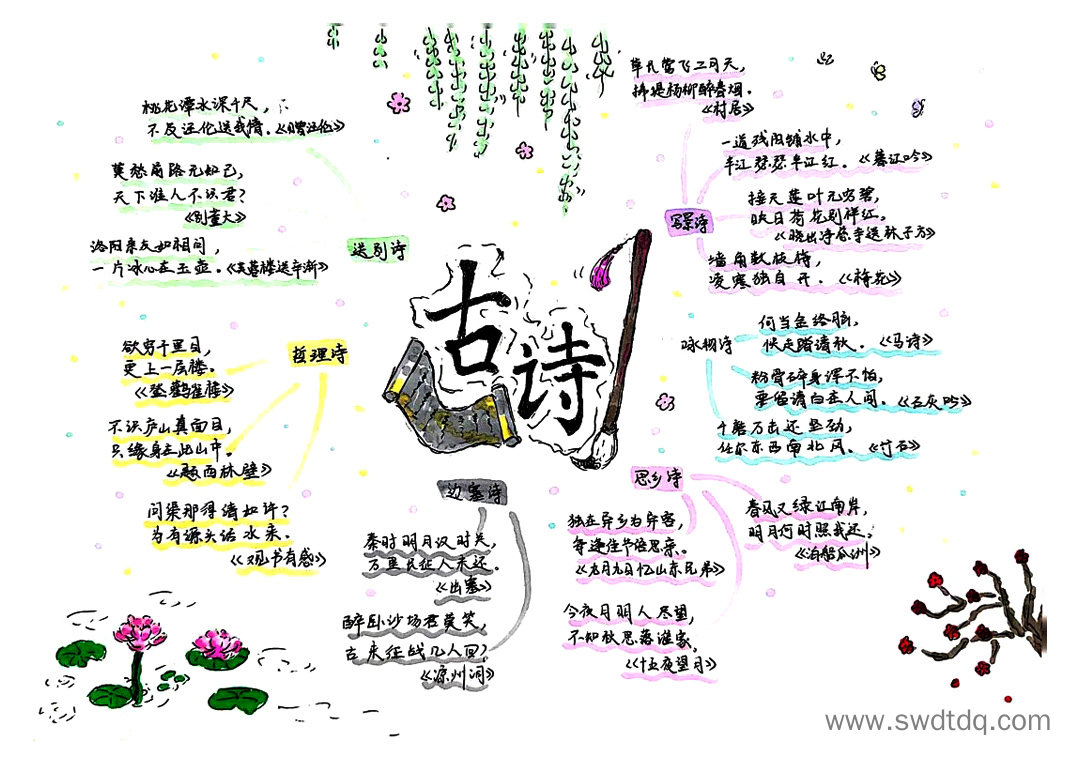 古诗
送别诗
桃花潭水深千尺，
不及汪伦送我情。《赠汪伦》
莫愁前路无知己，
天下谁人不识君？
《别董大》
洛阳亲友如相问，
一片冰心在玉壶。《芙蓉楼送辛渐》
哲理诗
欲穷千里目，
更上一层楼。
《登鹳雀楼》
不识庐山真面目，
只缘身在此山中。
《题西林壁》
问渠那得清如许？
为有源头活水来。
《观书有感》
边塞诗
秦时明月汉时关，
万里长征人未还。
《出塞》
醉卧沙场君莫笑，
古来征战几人回？
《凉州词》
写景诗
草长莺飞二月天，
拂堤杨柳醉春烟。
《村居》
一道残阳铺水中，
半江瑟瑟半江红。《暮江吟》
接天莲叶无穷碧，
映日荷花别样红。
《晓出净慈寺送林子方》
墙角数枝梅，
凌寒独自开。《梅花》
咏物诗
何当金络脑，
快走踏清秋。《马诗》
粉骨碎身浑不怕，
要留清白在人间。《石灰吟》
千磨万击还坚劲，
任尔东西南北风。《竹石》
思乡诗
独在异乡为异客，
每逢佳节倍思亲。
《九月九日忆山东兄弟》
今夜月明人尽望，
不知秋思落谁家。
《十五夜望月》
春风又绿江南岸，
明月何时照我还。
《泊船瓜洲》
www.swdtdq.com